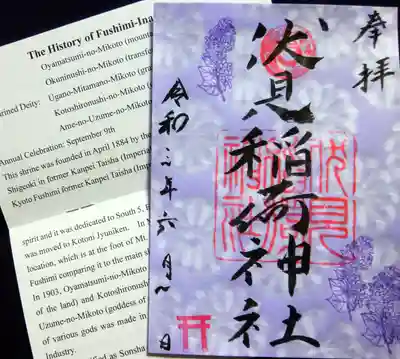 The History of Fushimi-Ina
Oyamatsumi-no-Mikoto (mounta
Okuninushi-no-Mikoto (transfor
rined Deity: Ugano-Mitamano-Mikoto (gra
Kotoshironushi-no-Mikoto (
Ame-no-Uzume-no-Mikoto (
Annual Celebration: September 9th
This shrine was founded in April 1884 by the
Shigeoki in former Kanpei Taisha (Imperial
Kyoto Fushimi former Kanpei Taisha (Imper
spirit and it was dedicated to South 5, E
was moved to Kotoni Jyuniken. In
location, which is at the foot of Mt.
Fushimi comparing it to the main sh
In 1903, Oyamatsumi-no-Mikoto
of the land) and Kotodhironush
Uzume-no-Mikoto (goddess of
of various gods was made in
Industry.
fied as Sonsha
奉拝
伏見稲荷神社
令和 年六月 日